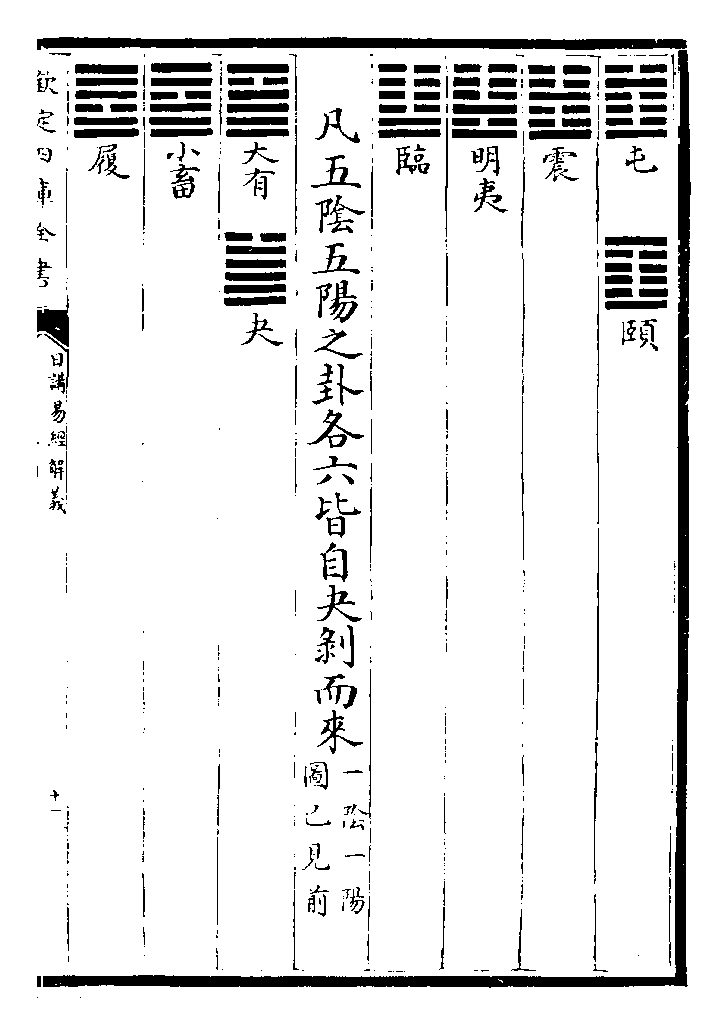 屯　頤
震
明夷
臨
凡五陰五陽之卦各六皆自夬剝而來
一陰一陽
圖已見前
大有　夬
小畜
履
欽定四庫全書
日講易經解義
十一